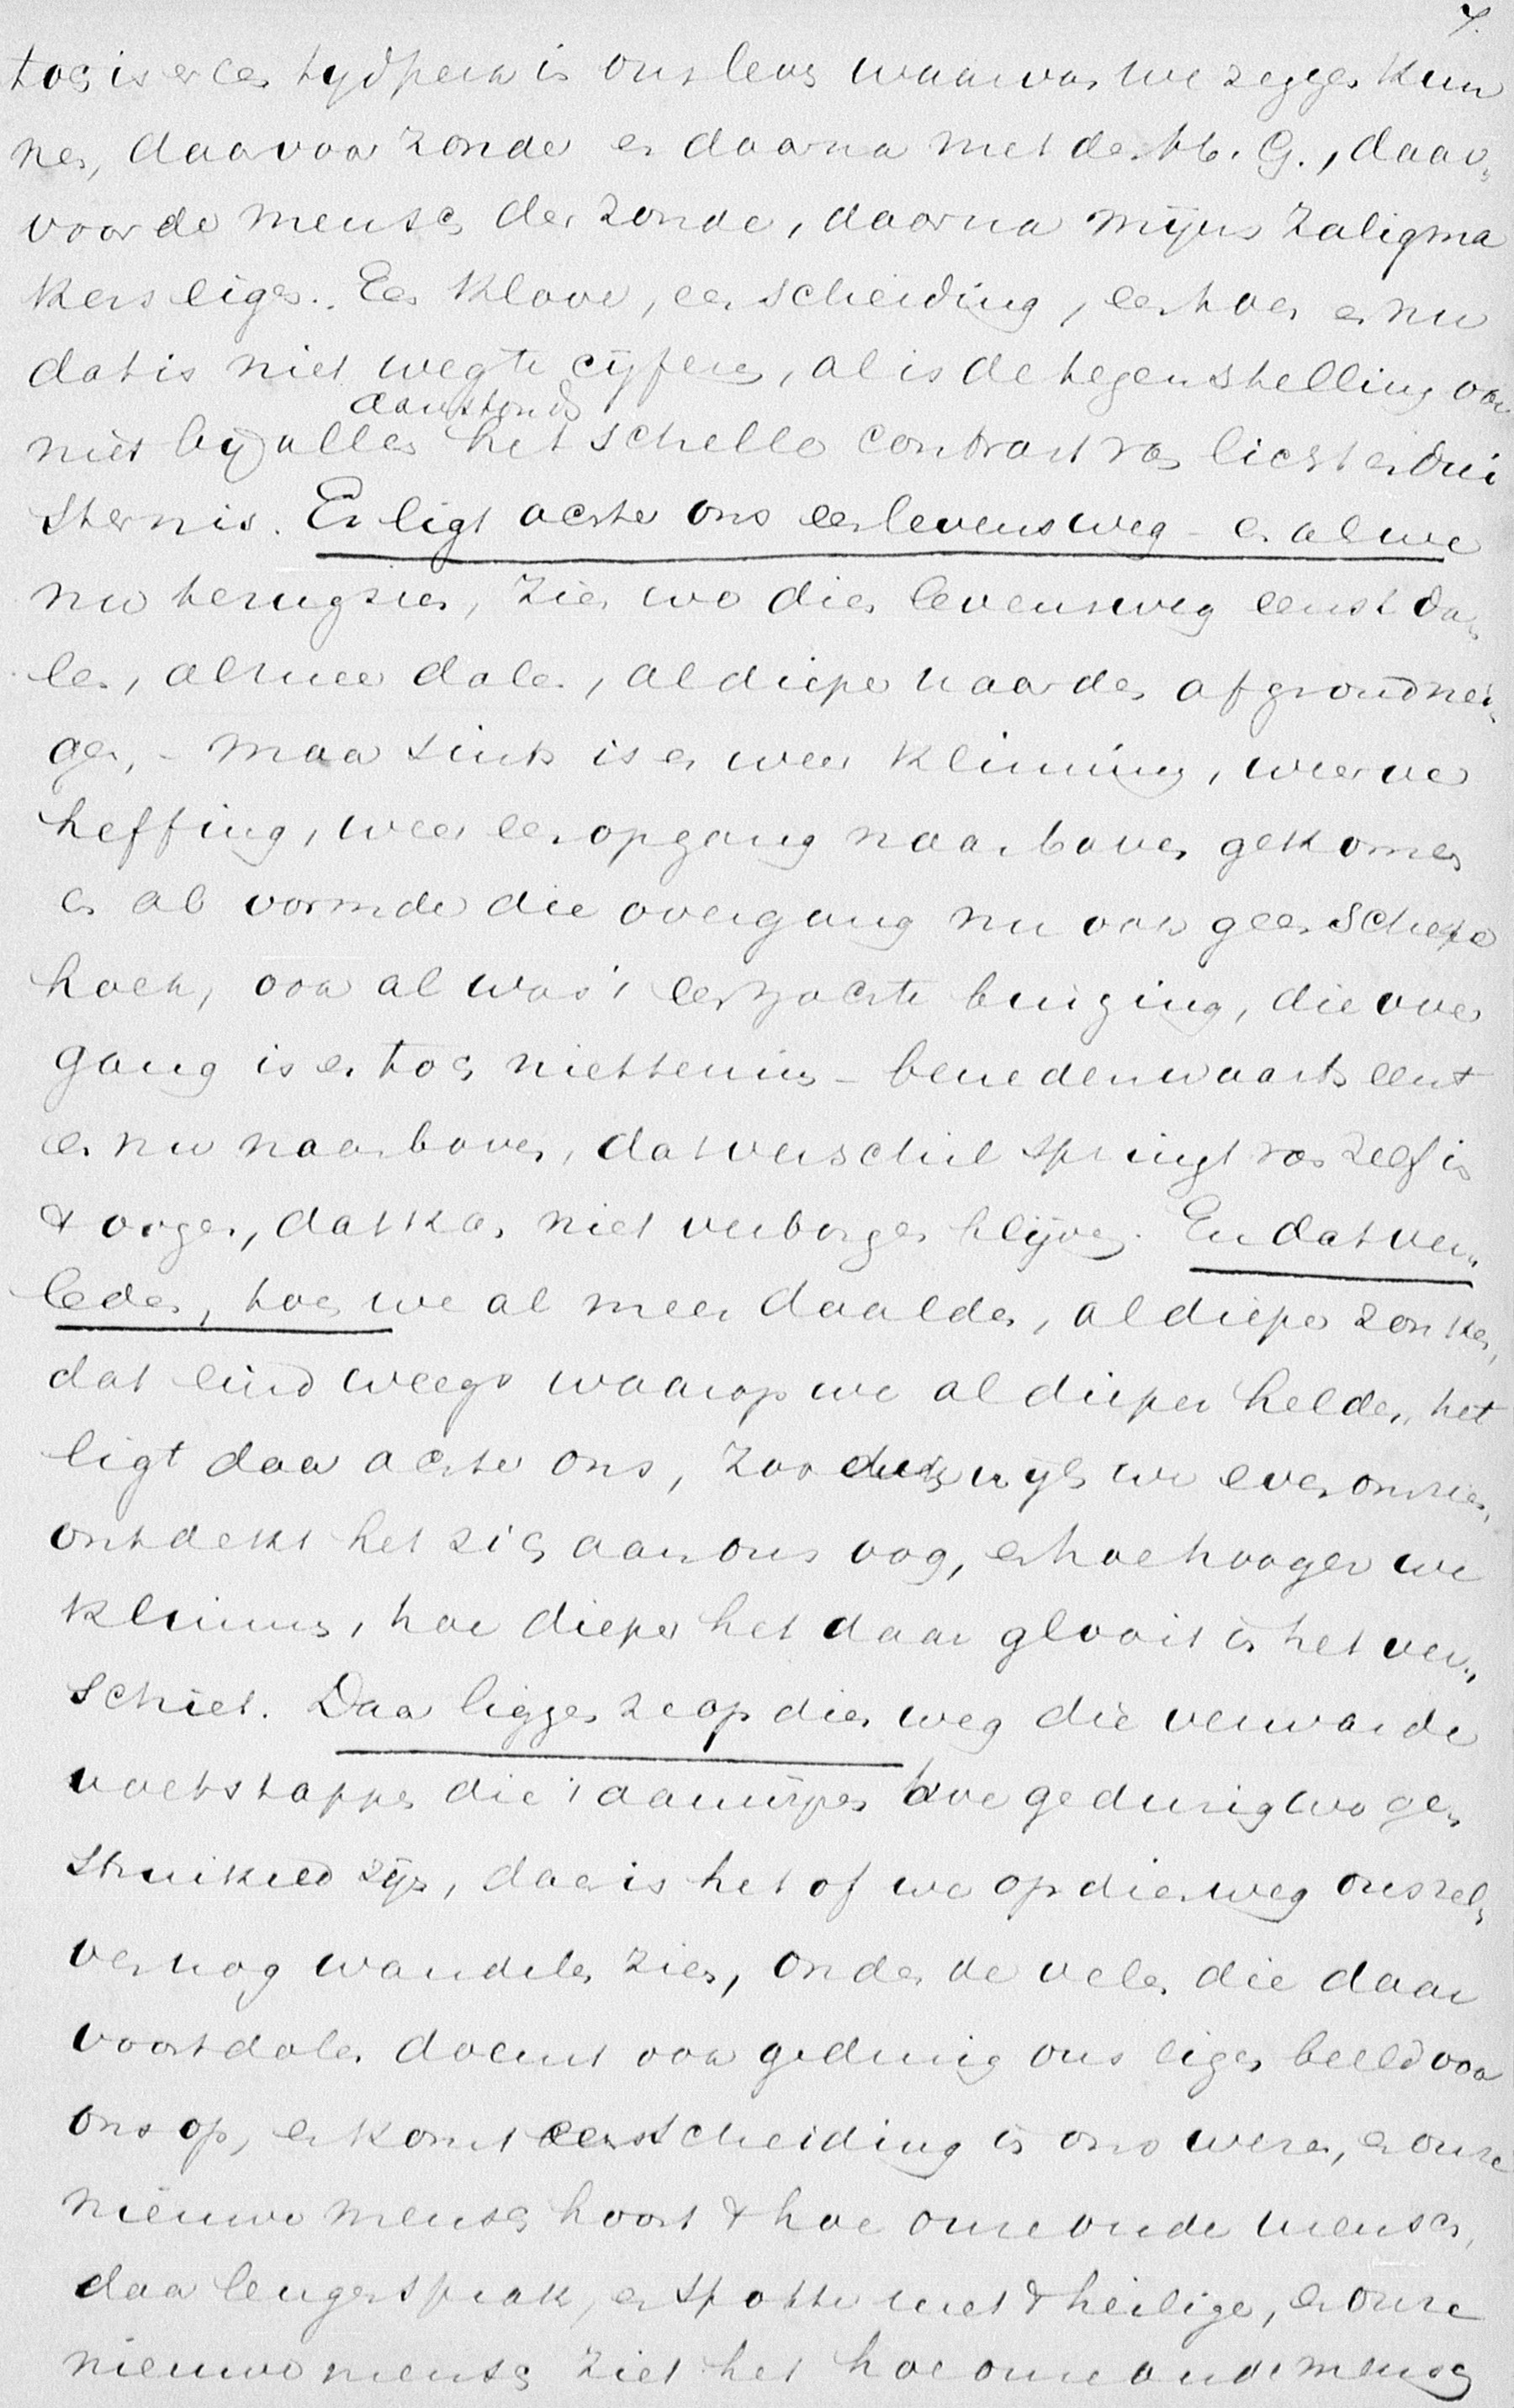 7.
toch is er een tydperk in ons leven waarvan we zeggen kun
nen, daarvoor zonde en daarna met den H. G., daar„
voor de mensch der zonde, daarna mijns Zaligma
kers eigen. Een klove, een scheiding, een toen en nu
dat is niet weg te cijferen, al is de tegenstelling ook
aanstonds
niet bij allen het schelle contrast van licht en dui
sternis. Er ligt achter ons een levensweg – en als we
nu terugzien, zien we dien levensweg eenst da„
len, al meer dalen, al dieper naar den afgrond nei„
gen, – maar sinds is er weer klimming, weer ver
heffing, weer een opgang naar boven gekomen
en al vormde die overgang nu ook geen scherpe
hoek, ook al was 't een zachte buiging, die over
gang is er toch niettemin – benedenwaarts eenst
en nu naar boven, dat verschil springt van zelf in
't oogen, dat kan niet verborgen blijven. En dat ver„
leden, toen we al meer daalden, al dieper zonken,
dat eind weegs waarop we al dieper helden, het
ligt daar achter ons, zoo dikwijls we even omzien,
ontdekt het zich aan ons oog, en hoe hooger we
klimmen, hoe dieper het daar glooit in het ver„
schiet. Daar liggen ze op dien weg die verwarde
voetstappen die 't aanwijzen hoe gedurig we ge„
struikeld zijn, daar is het of we op dien weg onszel„
ven nog wandelen zien, onder de velen die daar
voortdalen doemt ook gedurig ons eigen beeld voor
ons op, er komt een scheiding in ons wezen, en onze
nieuwe mensch hoort 't hoe onze oude mensch,
daar leugen sprak, en spotte met 't heilige, en onze
nieuwe mensch ziet het hoe onze oude mensch